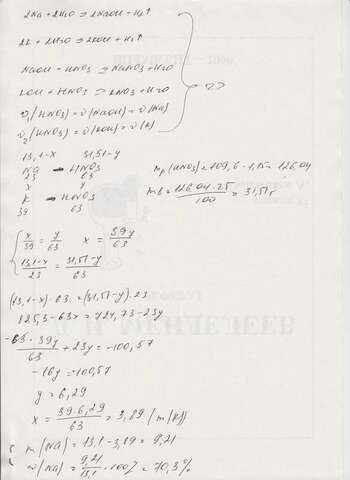 2Na + 2H2O = 2NaOH + H2↑
2K + 2H2O = 2KOH + H2↑
NaOH + HNO3 = NaNO3 + H2O
KOH + HNO3 = KNO3 + H2O
=>
ν1(HNO3) = ν(NaOH) = ν(Na)
ν2(HNO3) = ν(KOH) = ν(K)
13,1-x 31,51-y
Na — HNO3
23 63
x y
K — HNO3
39 63
mр(HNO3) = 109,6 · 1,15 = 126,04
mв = 126,04 · 25 / 100 = 31,51г
x/39 = y/63 x = 39y/63
13,1-x/23 = 31,51-y/63
(13,1-x) · 63 = (31,51-y) · 23
825,3 - 63x = 724,73 - 23y
-63 · 39y/63 + 23y = -100,57
-16y = -100,57
y = 6,29
x = 39 · 6,29/63 = 3,89 (m(K))
m(Na) = 13,1 - 3,89 = 9,21
ω(Na) = 9,21/13,1 · 100% = 70,3%
МЕНДЕЛЕЕВ